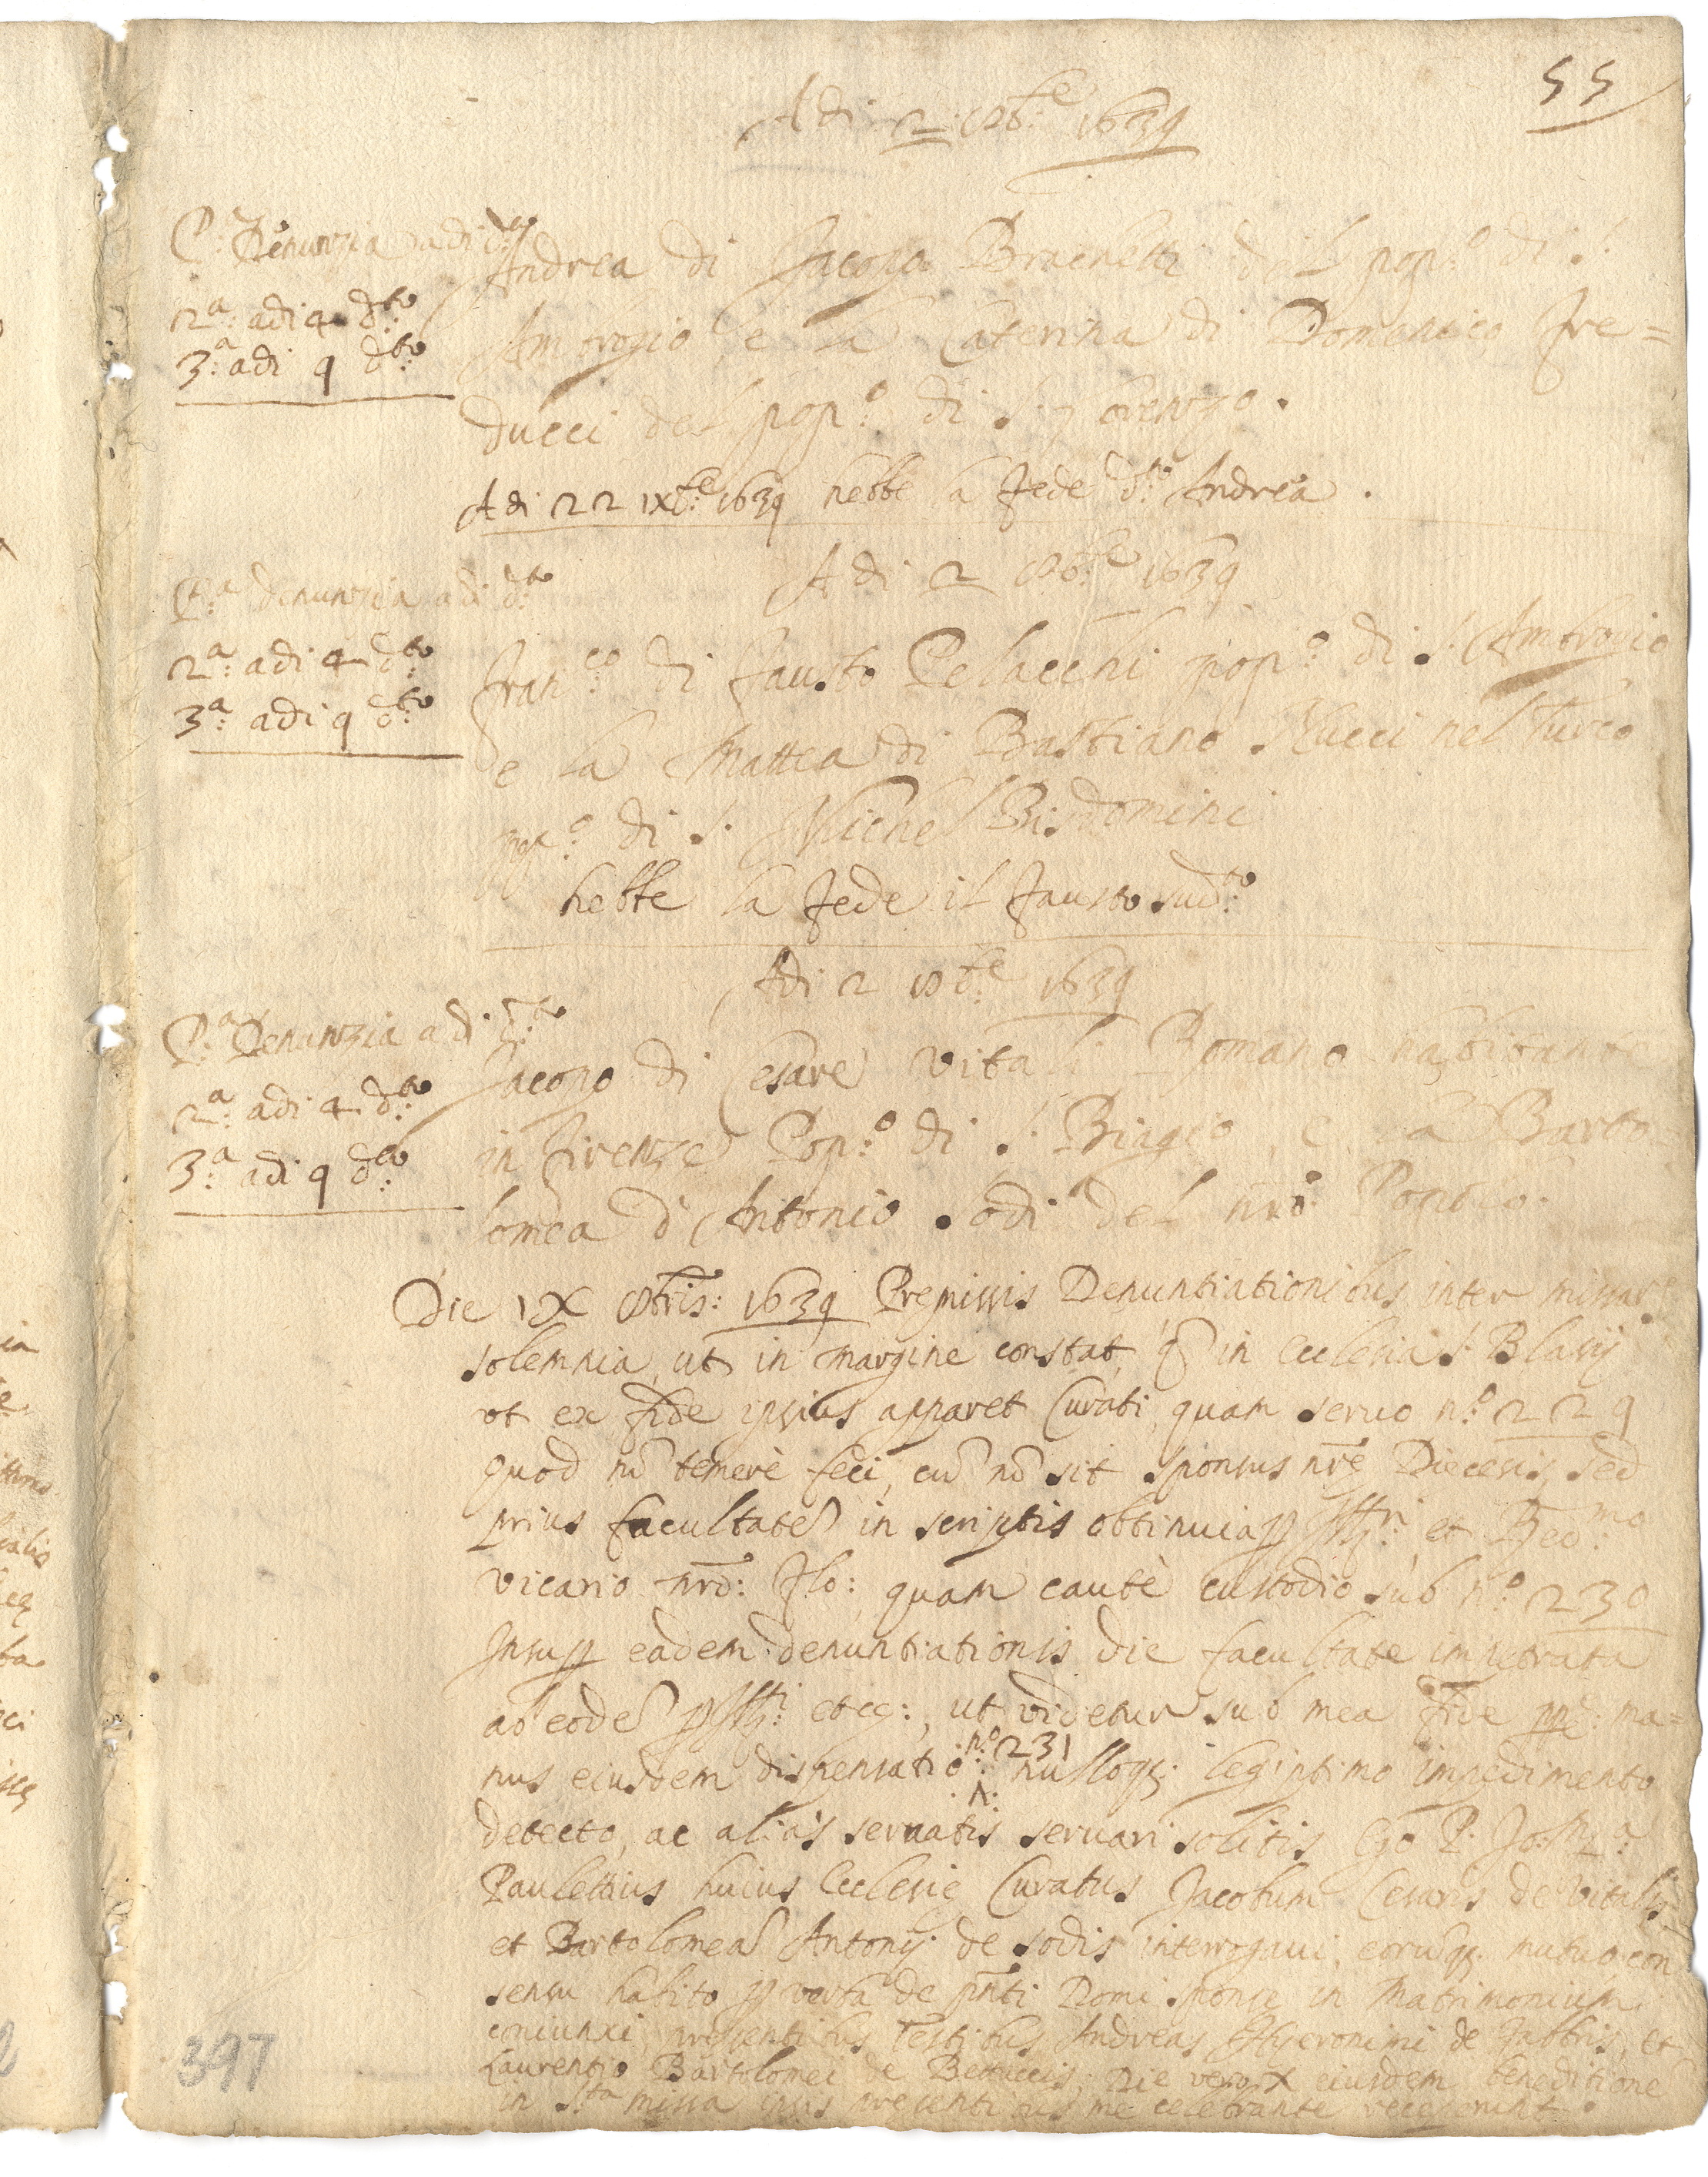 55
Adi 2 8b:re 1639
P:a Denunzia adi d:to
2:a adi 4 d:to
3:a adi 9 d:to
Andrea di Jacopo del pop:o di S.
Ambrogio e la Caterina di Domenico
ducci del pop:o di S. Lorenzo.
Adi 22 1639 hebbe la fede d:to Andrea.
Adi 2 8b:re 1639
P:a denunzia adi d:to
2:a adi 4 d:to
3:a adi 9 d:to
Fran:co di Fausto Pelacchi pop:o di S. Ambrogio
e la Mattea di Bastiano Nucci nel
pop:o di S. Michel Bisdomini
hebbe la fede il Fausto sud:to
Adi 2 8b:re 1639
P:a Denunzia adi d:to
2:a adi 4 d:to
3:a adi 9 d:to
Jacopo di Cesare Vitali Romano habitante
in Firenze Pop:o di S. Biagio, e la Barto=
lomea d'Antonio Sodi del nro: Popolo.
Die IX 8bris: 1639 Premissis Denuntiationibus inter missar:
solemnia, ut in margine constat, in Ecclesia S. Blasij
ut ex fide ipsius apparet Curati, quam servo n:o 229
quod nō temerè feci, cū nō sit sponsus nrē Diecesis, sed
prius facultatē in scriptis obtinui et
vicario nrō: Flo: quam cautè custodio sub n:o 230
Insup eadem denuntiationis die facultate impetrata
ab eodē ut videtur sub mea fide ma=
nus eiusdem dispensatiō: n:o 231 nulloq; legiptimo impedimento
detecto, ac aliàs servatis servari solitis Ego P.
Paulettius huius Ecclesię Curatus Jacobum Cesaris de Vitalis
et Bartolomeā Antonij de Sodis interrogavi, eorūq; mutuo con
sensu habito p verba de pnti Domi sponsę in Matrimonium
coniunxi, presentibus Testibus Andreas Hyeronimi de et
Laurentio Bartolomei de Bettuccis; Die vero X eiusdem beneditione
in S:ta missa ipsis presentibus me celebrante receperunt.
397